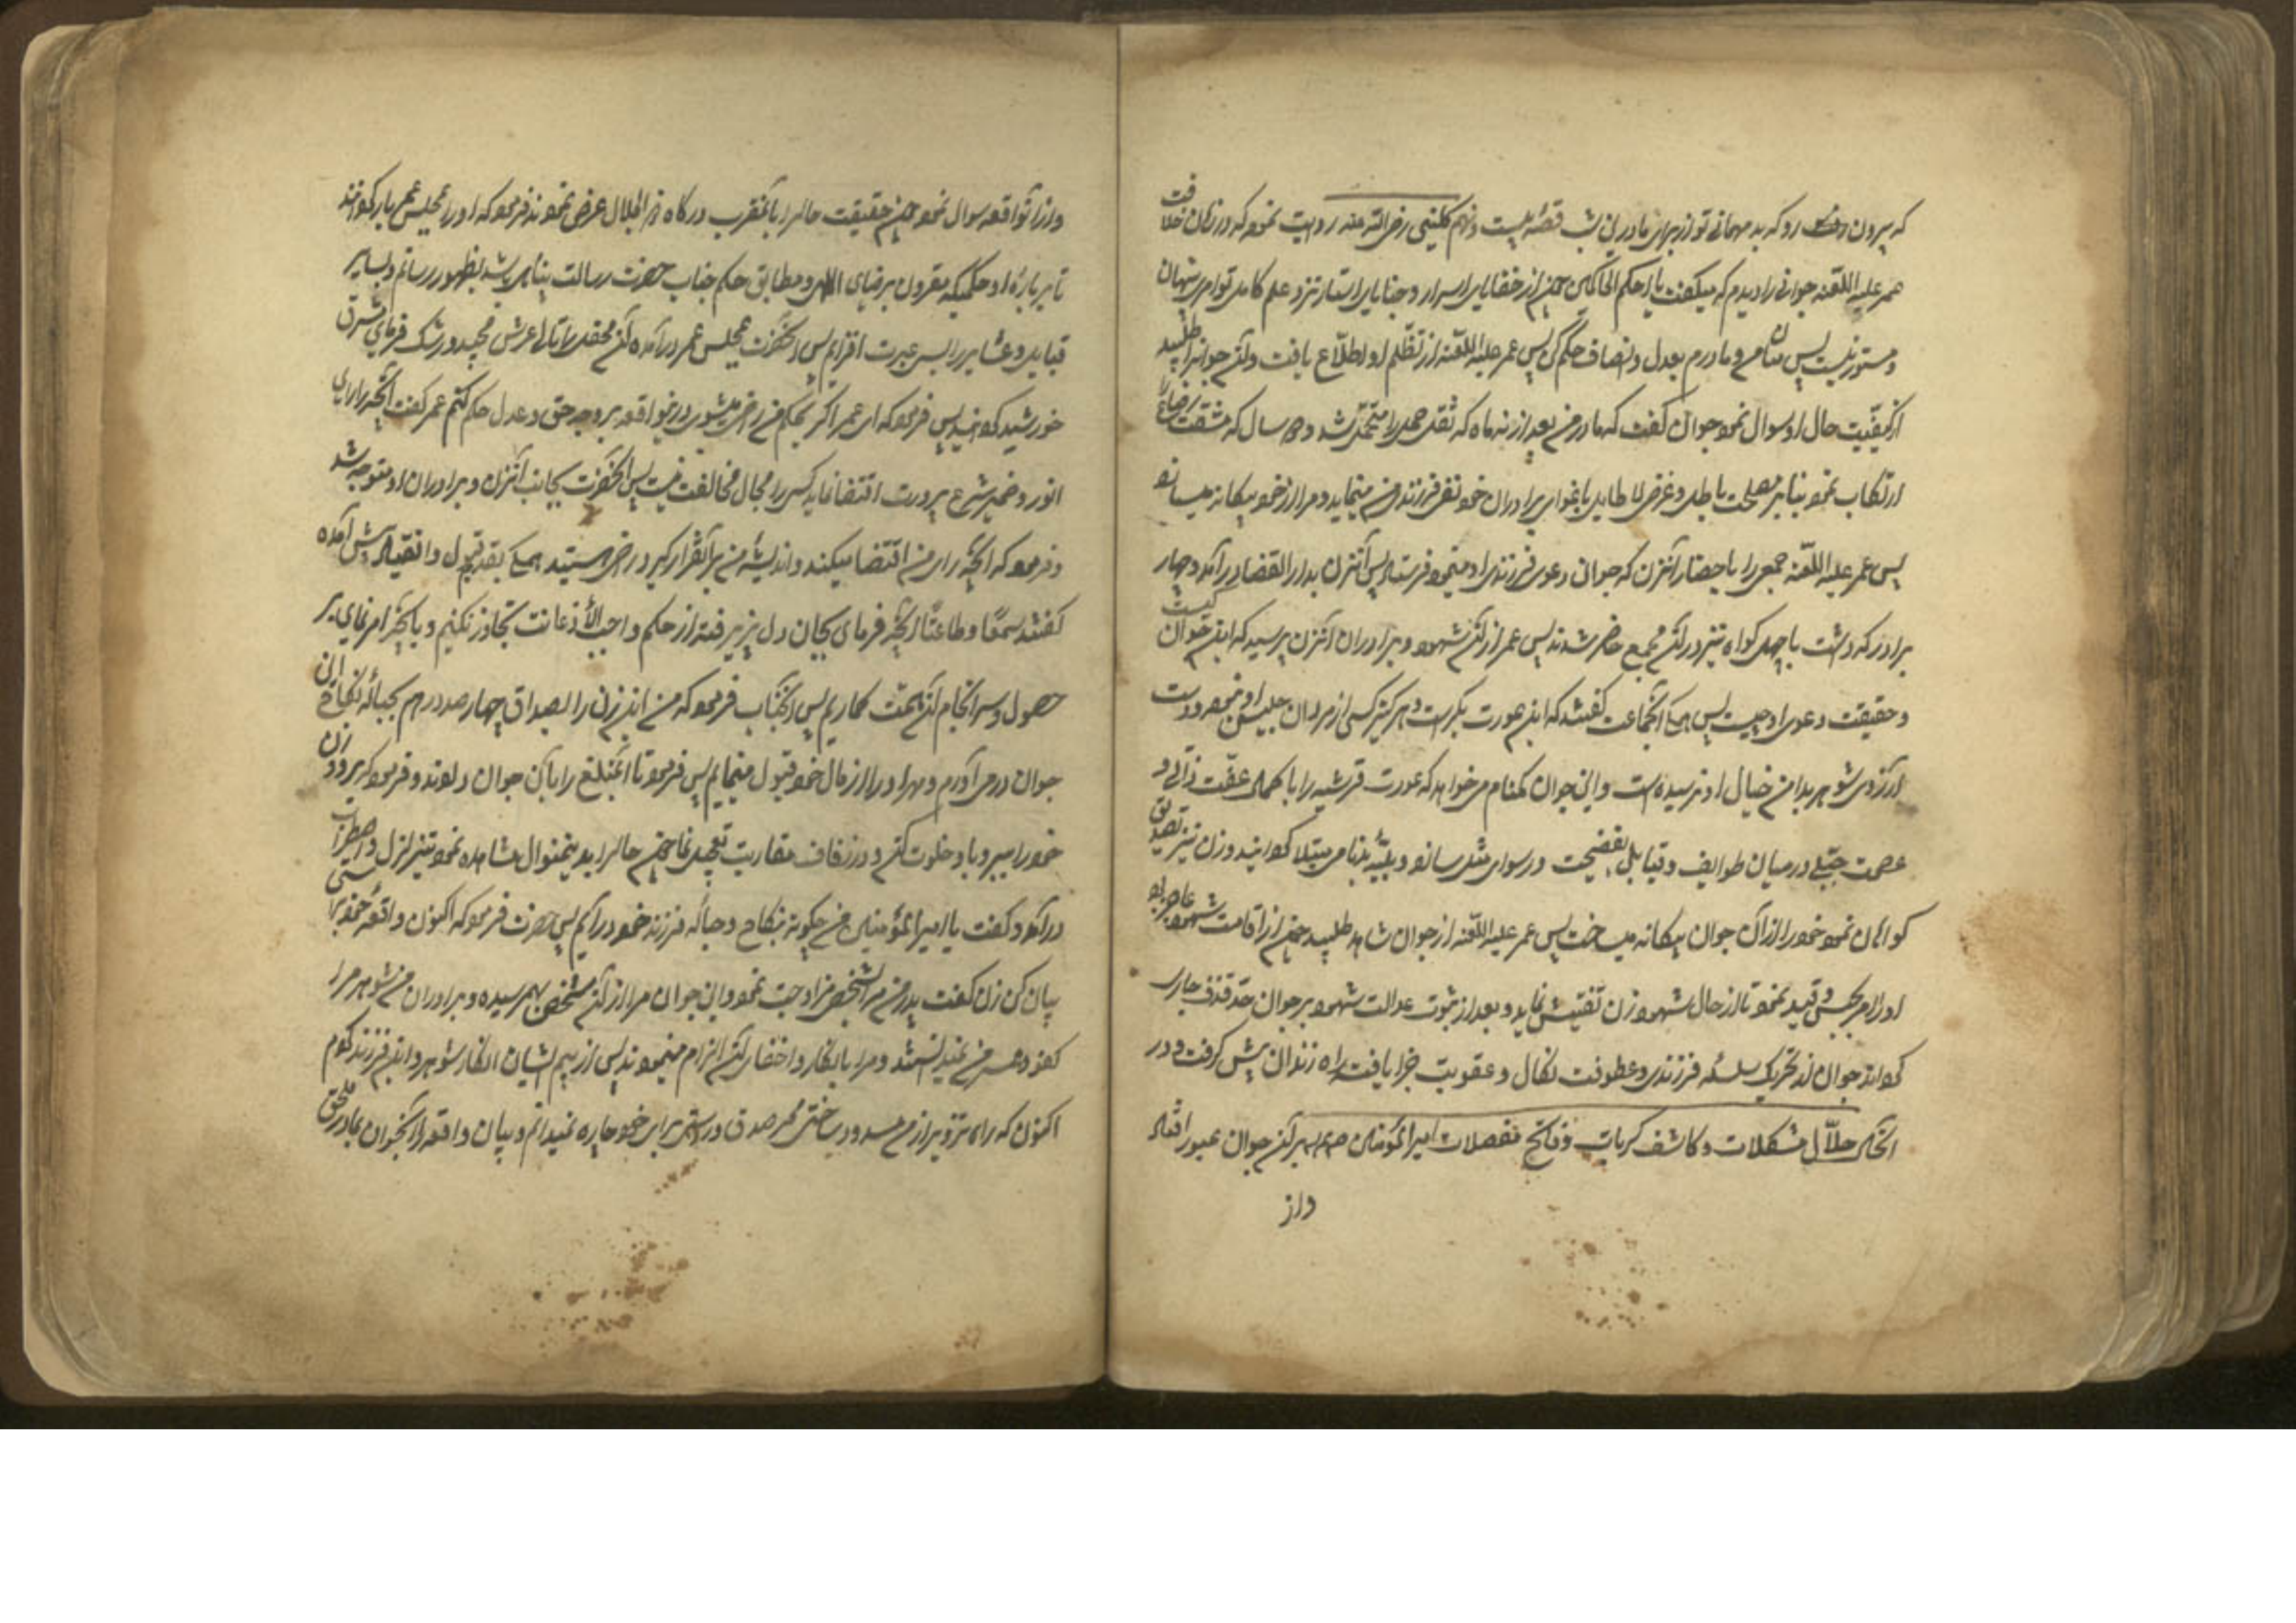 که بیرون رو که بد مهمانی تو از برای مادر این شب قصهٔ بیست و نهم کلینی رضی الله عنه روایت نموده که در زمان خلافت
عمر علیه اللعنه جوانی را دیدم که میگفت یا احکم الحاکمین چون از خفایای اسرار و خبایای استار نزد علم کامل تو امری پنهان
و مستور نیست پس میان من و مادرم بعدل و انصاف حکم کن پس عمر علیه اللعنه از تظلم او اطلاع یافت و آن جوانرا طلبید
از کیفیت حال او سوال نمود جوان گفت که مادر من بعد از نه ماه که ثقل حمل را متحمل شد و دو سال که مشقت رضاع
ارتکاب نمود بنابر مصلحت باطل و غرض لا طایل باغوای برادران خود نفی فرزندی من مینماید و مرا از خود بیکانه میسازد
پس عمر علیه اللعنه جمعی را باحضار آنزن که جوان دعوی فرزندی او مینمود فرستاد پس آنزن بدار القضا درآمد و چهار
برادر که داشت با چهل کواه نیز در آن مجمع حاضر شدند پس عمر از آن شهود و برادران آنزن پرسید که این جوان کیست
و حقیقت دعوی او چیست پس همه آنجماعت گفتند که این عورت بکرست و هرگز کسی از مردان جلیس او نبوده است
آرزوی شوهر بدامن خیال او نرسیده است و این جوان کمنام میخواهد که عورت قرشیه را با کمال عفت ذاتی و
عصمت جبلی در میان طوایف و قبایل بفضیحت و رسوای مثل سازد و ببلیهٔ بدنامی مبتلا کرداند و زن نیز تصدیق
کواهان نمود خود را از آن جوان بیکانه میساخت پس عمر علیه اللعنه از جوان شاهد طلبید چون از اقامت شهود عاجز بود
او را امر بحبس و قید نمود تا از حال شهود زن تفتیش نماید و بعد از ثبوت عدالت شهود بر جوان حد قذف جاری
کرداند جوان از تحریک سلسلهٔ فرزندی و عطوفت نکال و عقوبت جزا یافت راه زندان پیش گرفت و در
آنحال حلال مشکلات و کاشف کربات و فاتح معضلات امیر المؤمنین بر آن جوان عبور افتاد
واز
واز آن واقعه سوال نمود چون حقیقت حال را بآن مقرب درگاه ذو الجلال عرض نمودند فرمود که او را بمجلس عمر باز کردانند
تا در بارهٔ او حکمی که مقرون برضای الهی و مطابق حکم جناب حضرت رسالت پناهی باشد بظهور رسانم و بسایر
قبایل و عشایر را بسی عبرت افزایم پس آنحضرت بمجلس عمر درآمده آن محفل را تالی عرش مجید و رشک فرمای مشرق
خورشید کردانید پس فرمود که ای عمر اگر بحکم من راضی میشوی درین واقعه بر وجه حق و عدل حکم کنم عمر گفت آنچه رای
انور و ضمیر شرع پرورت اقتضا نماید کسی را مجال مخالفت نیست پس آنحضرت بجانب آنزن و برادران او متوجه شد
و فرمود که آنچه رای من اقتضا میکند و اندیشهٔ من بر آن قرار گیرد راضی هستید همه بقدم قبول و انقیاد پیش آمده
گفتند سمعا و طاعتا آنچه فرمای بجان و دل پذیرفته از حکم واجب الاذعانت تجاوز نکنیم و بآنچه امر نمای در
حصول و سر انجام آن همت گماریم پس آنجناب فرمود که من این زن را بصداق چهار صد درهم بحبالهٔ نکاح این
جوان درمی آورم و مهر او را از مال خود قبول مینمایم پس فرمود تا آن مبلغ را بآن جوان دادند و فرمود که برو زن
خود را ببر و با او خلوت کن و در زفاف مقاربت تعجیل نما چون حال را بدین منوال مشاهده نمود تزلزل و اضطراب
درآمد و گفت یا امیر المؤمنین من چگونه بنکاح و حبالهٔ فرزند خود درآیم پس حضرت فرمود که اکنون واقعهٔ خود براستی
بیان کن زن گفت پدر من مرا بشخصی مزاوجت نمود و این جوان مرا از آن شخص بهم رسیده و برادران من شوهر مرا
کفو و همسر من نمیدانستند و مرا بانکار و اخفای آن الزام مینمودند پس از بیم ایشان انکار شوهر و این فرزند کردم
اکنون که راه تزویر از من مسدود ساختی بجز صدق و راستی برای خود چاره نمیدانم و بیان واقعه را آنجوان بمادر ملحق